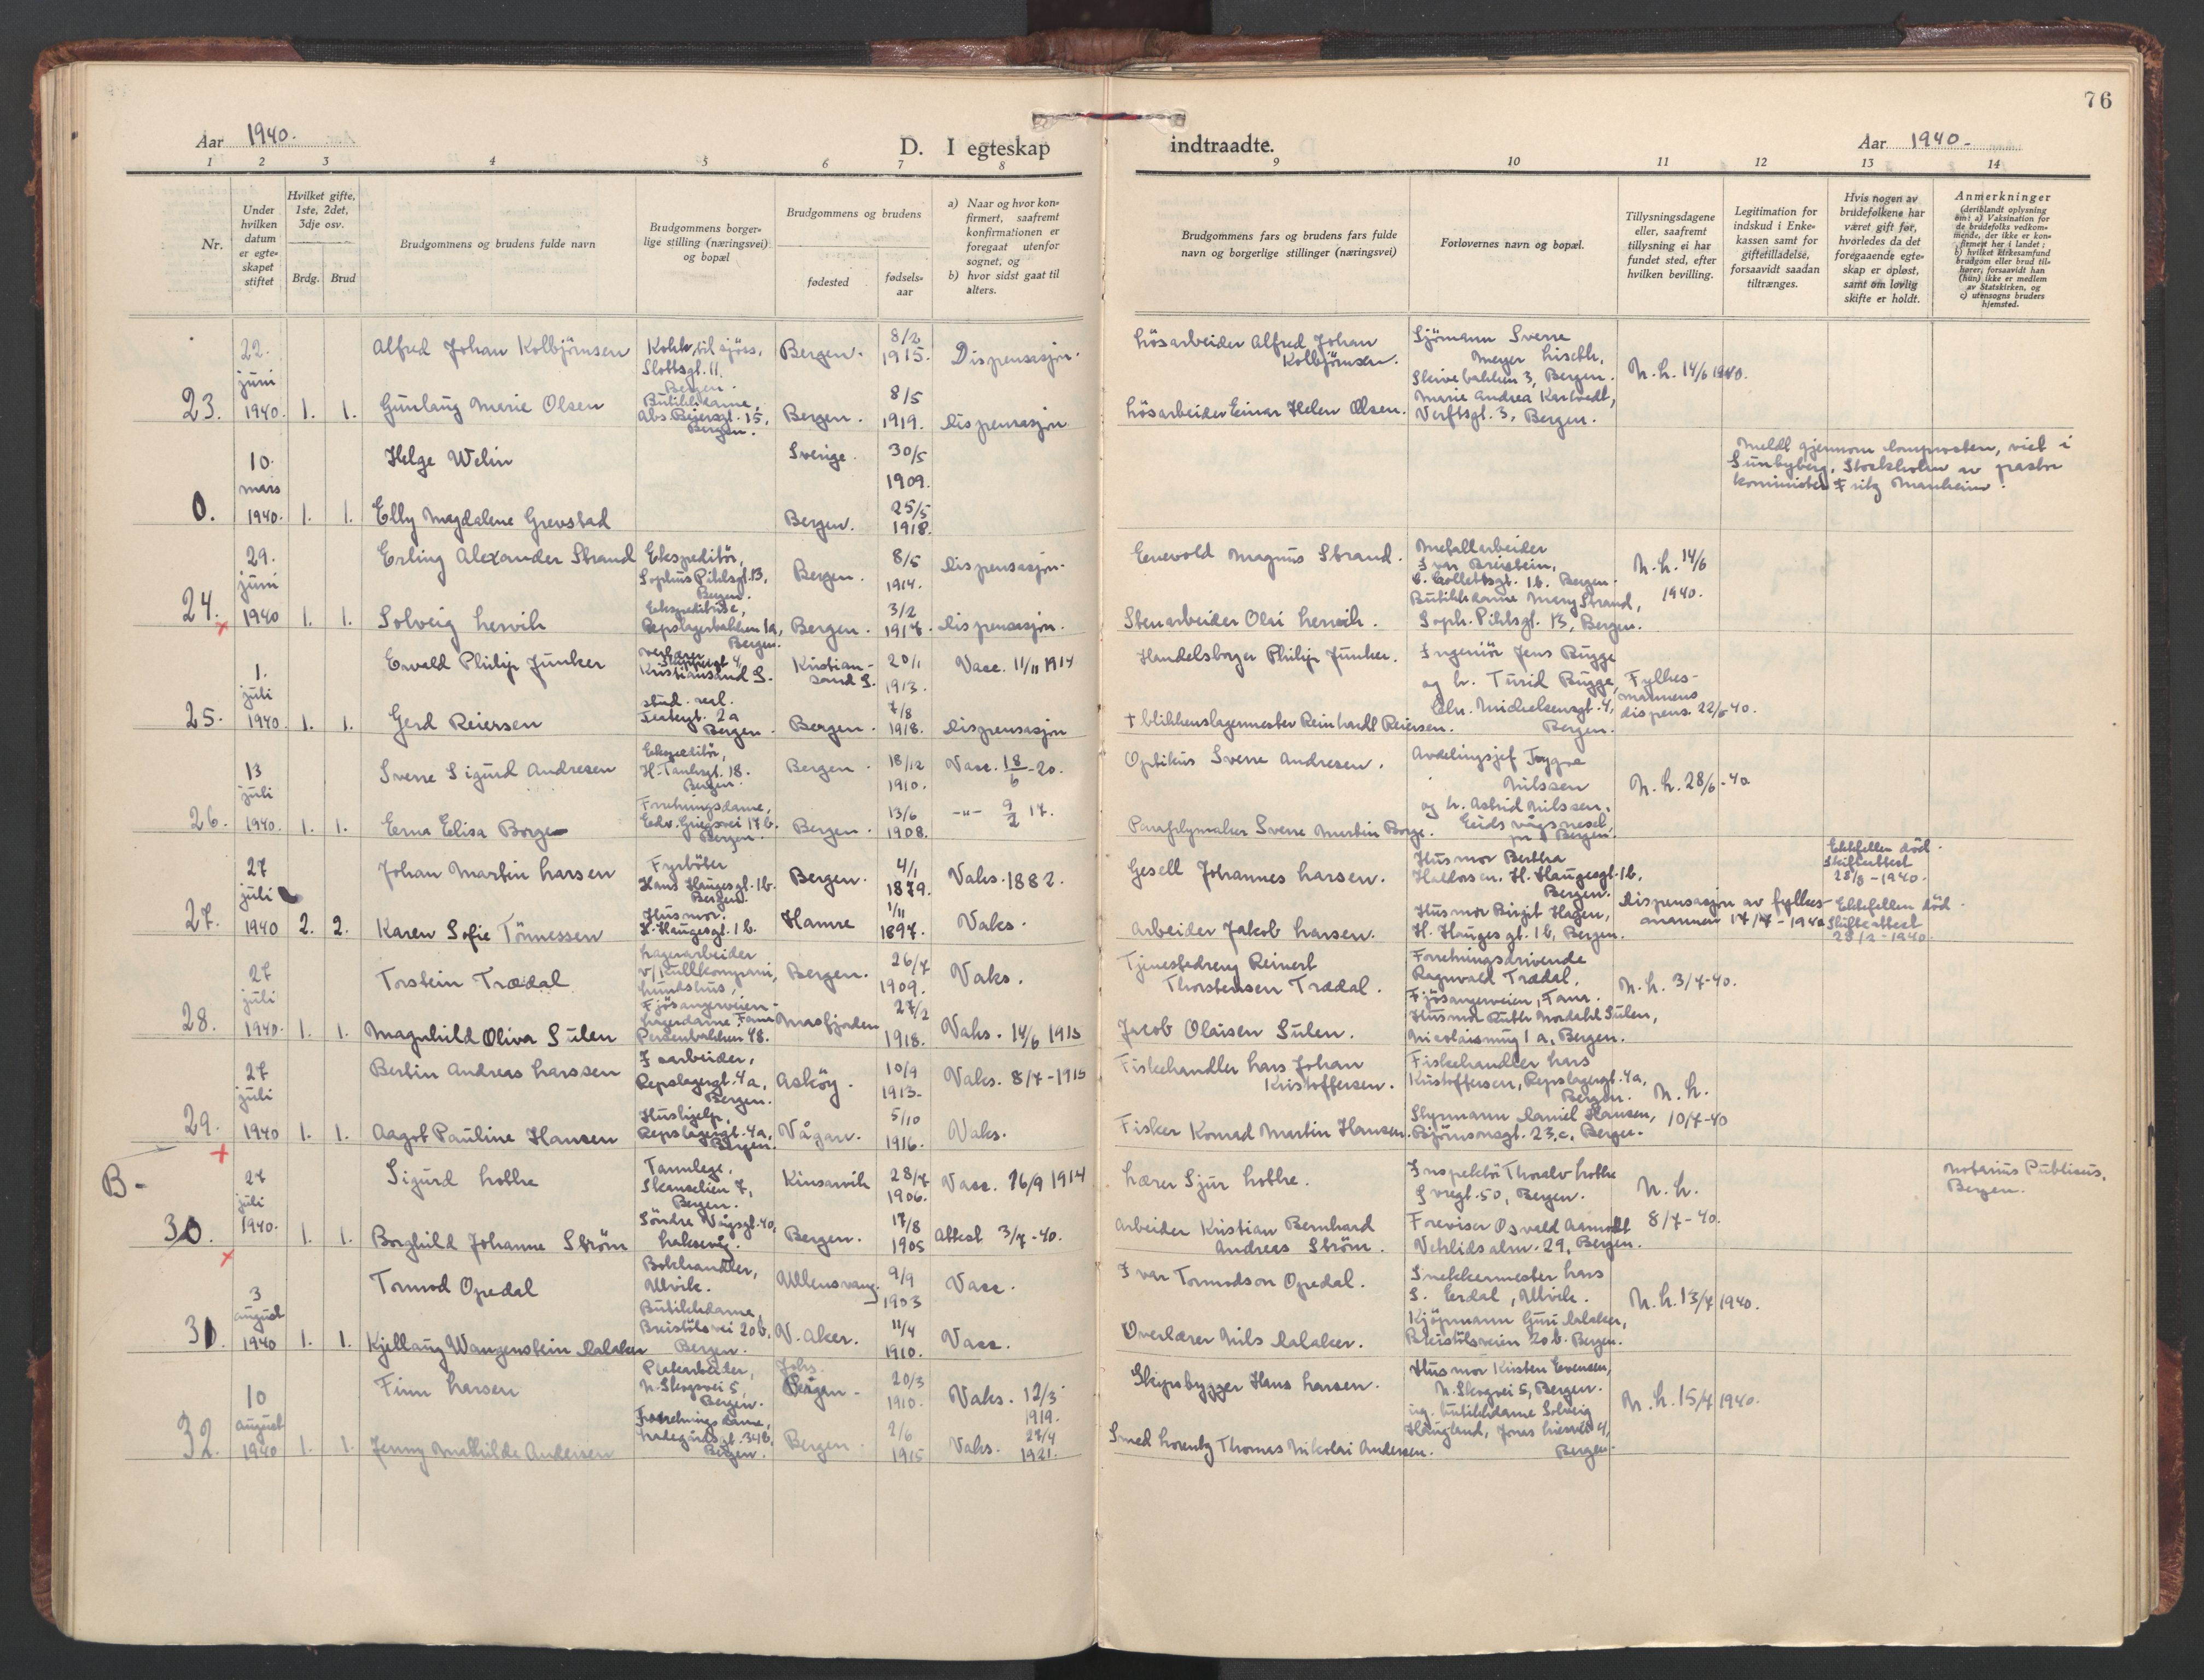 76
Aar 1940.
D. I egteskap indtraadte.
Aar 1940.
1 2 3 4 5 6 7 8 9 10 11 12 13 14
Nr.
Under
hvilken
datum
er egte-
skapet
stiftet
Hvilket gifte,
1ste, 2det,
3dje osv.
Brdg. Brud
Brudgommens og brudens fulde navn
Brudgommens borger-
lige stilling (næringsvei)
og bopæl
Brudgommens og brudens
fødested
fødsels-
aar
a) Naar og hvor kon-
firmert, saafremt
konfirmationen er
foregaat utenfor
sognet, og
b) hvor sidst gaat til
alters.
Brudgommens fars og brudens fars fulde
navn og borgerlige stillinger (næringsvei)
Forlovernes navn og bopæl.
Tillysningsdagene
eller, saafremt
tillysning ei har
fundet sted, efter
hvilken bevilling.
Legitimation for
indskud i Enke-
kassen samt for
giftetilladelse,
forsaavidt saadan
tiltrænges.
Hvis nogen av
brudefolkene har
været gift før,
hvorledes da det
foregaaende egte-
skap er opløst,
samt om lovlig
skifte er holdt.
Anmerkninger
(deriblandt oplysning
om: a) Vaksination for
de brudefolks vedkom-
mende, der ikke er kon-
firmert her i landet;
b) hvilket kirkesamfund
brudgom eller brud til-
hører, forsaavidt han
(hun) ikke er medlem
av Statskirken, og
c) utensogns bruders
hjemsted.
23.
22.
juni
1940. 1. 1.
Alfred Johan Kolbjörnsen
Kokk til sjöss,
Slottsgt. 11.
Bergen.
Bergen.
8/2
1915.
Dispensasjon.
Lösarbeider Alfred Johan
Kolbjörnsen.
Sjömann Sverre
Meyer Lischth,
Skivebakken 3, Bergen.
N.h. 14/6 1940.
Gunlaug Marie Olsen
Butikkdame,
Abs. Beiersgt. 15,
Bergen.
Bergen.
8/5
1919.
Dispensasjon.
Lösarbeider Einar Helen Olsen.
Marie Andrea Kartvedt,
Verftsgt. 3, Bergen.
0.
10.
mars
1940. 1. 1.
Helge Welin
Sverige.
30/5
1909.
Meldt gjennom domprosten, viet i
Sunbyberg, Stockholm av pastor
kominister Fritz Manheim.
Elly Magdalene Grevstad
Bergen.
25/5
1918.
24.
29.
juni
1940 1. 1.
Erling Alexander Strand
Ekspeditör,
Sophus Pihlsgt. 13,
Bergen.
Bergen.
8/5
1914.
Dispensasjon.
Enevold Magnus Strand.
Metallarbeider
Ivar Breistein,
C. Collettsgt. 1b. Bergen.
N.h. 14/6
1940.
Solveig Lervik
Ekspeditrise,
Repslagerbakken 1a,
Bergen.
Bergen.
3/2
1917.
Dispensasjon.
Stenarbeider Olai Lervik.
Butikkdame Mary Strand,
Soph. Pihlsgt. 13, Bergen.
25.
1.
juli
1940. 1. 1.
Ewald Philip Junker
Kristiansand S.
Kristian-
sand S.
20/1
1913.
Vacc. 11/11 1914
Handelsborger Philip Junker.
Ingeniör Jens Bugge
og fr. Turid Bugge,
Chr. Michelsensgt. 4,
Bergen.
Fylkes-
mannens
dispens. 22/6-40.
Gerd Reiersen
stud. real.
Teatergt. 2a
Bergen.
Bergen.
7/8
1918.
Dispensasjon
† blikkenslagermester Reinhardt Reiersen.
26.
13
juli
1940. 1. 1.
Sverre Sigurd Andresen
Ekspeditör,
H. Tanksgt. 18.
Bergen.
Bergen.
18/12
1910.
Vacc. 18/6-20.
Optikus Sverre Andresen.
Avdelingsjef Trygve
Nilssen
N.h. 28/6-40
Erna Elisa Borge
Forretningsdame,
Edv. Griegsvei 17b.
Bergen.
Bergen.
13/6
1908.
-"- 9/2 17.
Paraplymaker Sverre Martin Borge.
og fr. Astrid Nilssen,
Eidsvågsneset
pr Bergen.
27.
27
juli
1940 2. 2.
Johan Martin Larsen
Fyrböter
Hans Haugesgt. 1b.
Bergen.
Bergen.
4/1
1879.
Vaks. 1882.
Gesell Johannes Larsen.
Husmor Bertha
Halvorsen, H. Haugesgt. 1b,
Bergen.
Ektefellen död.
Skifteattest
28/8-1940.
Karen Sofie Tönnessen
Husmor.
H. Haugesgt. 1b.
Hamre
1/11
1897.
Vaks.
Arbeider Jakob Larsen.
Husmor Birgit Hagen,
H. Hauges gt. 1b, Bergen.
Dispensasjon av fylkes-
mannen 17/7-1940
Ektefellen död.
Skifteattest
28/2-1940.
28.
27
juli
1940. 1. 1.
Torstein Trædal
Lagerarbeider
v/ Kullkompani,
Lundshus,
Fjösangerveien.
Fana
Bergen.
26/7
1909.
Vaks.
Tjenestedreng Reinert
Thorstensen Trædal.
Forretningsdrivende
Ragnvald Trædal,
Fjösangerveien, Fana.
N.h. 3/7-40.
Magnhild Oliva Sulen
Lagerdame
Persenbakken 48.
Masfjorden
27/2
1918.
Vaks. 14/6 1915
Jacob Olaisen Sulen.
Husmor Ruth Nordahl Sulen,
Nicolaismug 1a, Bergen.
29.
27
juli
1940 1. 1.
Bertin Andreas Larssen
Isarbeider,
Repslagergt. 4a,
Bergen.
Asköy.
10/9
1913.
Vaks. 8/7-1915
Fiskehandler Lars Johan
Kristoffersen.
Fiskehandler Lars
Kristoffersen, Repslagergt. 4a,
Bergen.
N.h.
10/7-40
Aagot Pauline Hansen
Hushjelp,
Repslagergt. 4a,
Bergen.
Vågan.
5/10
1916.
Vaks.
Fisker Konrad Martin Hansen.
Styrmann Daniel Hansen,
Björnsonsgt. 23, c, Bergen.
B-
30.
27
juli
1940. 1. 1.
Sigurd Lothe
Tannlege,
Skanselien 7,
Bergen.
Kinsarvik
28/7
1906.
Vacc. 16/9 1914
Lærer Sjur Lothe.
Inspektör Thoralv Lothe
Ivregt. 50, Bergen.
N.h.
8/7-40.
Notarius Publicus,
Bergen.
Borghild Johanne Ström
Söndre Vågsgt. 40,
Laksevåg.
Bergen.
17/8
1905
Attest 3/7-40.
Arbeider Kristian Bernhard
Andreas Ström.
Foreviser Osvald Aamodt
Vetrlidsalm. 29, Bergen.
31.
3
august
1940 1. 1.
Tormod Opedal
Bokhandler,
Ulvik.
Ullensvang.
9/9
1903
Vacc.
Ivar Tormodson Opedal.
Snekkermester Lars
S. Erdal, Ulvik.
N.h. 13/7 1940.
Kjellaug Wangenstein Dalaker
Butikkdame,
Breistölsvei 20b,
Bergen.
V. Aker.
11/4
1910.
Vacc.
Overlærer Nils Dalaker.
Kjöpmann Guri Dalaker,
Breistölsveien 20b. Bergen.
32.
10
august
1940 1. 1.
Finn Larsen
Platearbeider,
N. Skogvei 5,
Bergen.
Johs.
Bergen.
20/3
1910.
Vaks. 12/3
1919.
Skipsbygger Hans Larsen.
Husmor Kirsten Evensen,
N. Skogvei 5, Bergen.
N.h. 15/7 1940.
Jenny Mathilde Andersen
Forretningsdame,
Ladegårdsgt. 34b,
Bergen.
Bergen.
2/6
1915
Vaks. 27/4
1921.
Smed Lorentz Thomas Nikolai Andersen.
og butikkdame Solveig
Haugland, Jonas Liesvei 4,
Bergen.